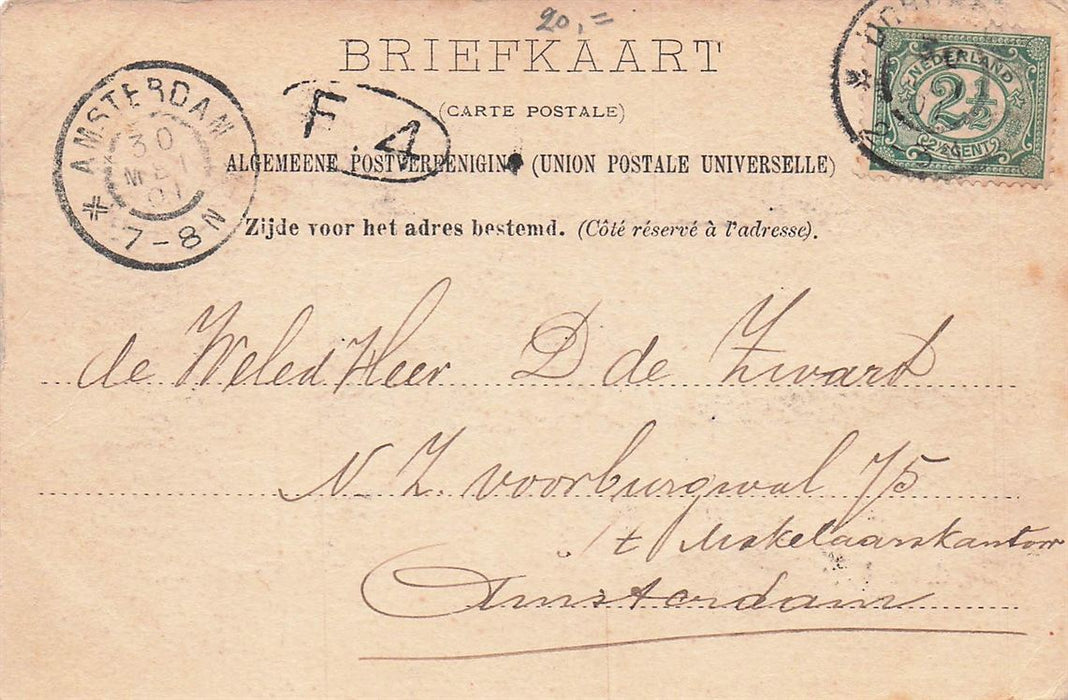 20,=
BRIEFKAART
(CARTE POSTALE)
ALGEMEENE POSTVEREENIGING (UNION POSTALE UNIVERSELLE)
Zijde voor het adres bestemd. (Côté réservé à l'adresse).
AMSTERDAM
30
MEI
01
7-8N
F. 4
NEDERLAND
2½
2½ CENT 2½
de WeledHeer D de Zwart
N Z. voorburgwal 75
/t Makelaarskantoor
Amsterdam